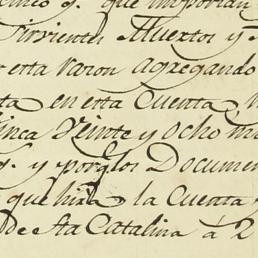 cinco q. que importan
Sirvientes Muertos y
esta razon agregando
ta en esta Cuenta
inca Veinte y ocho
q. y por los Documen
que hira la Cuenta
de Sta Catalina á 2